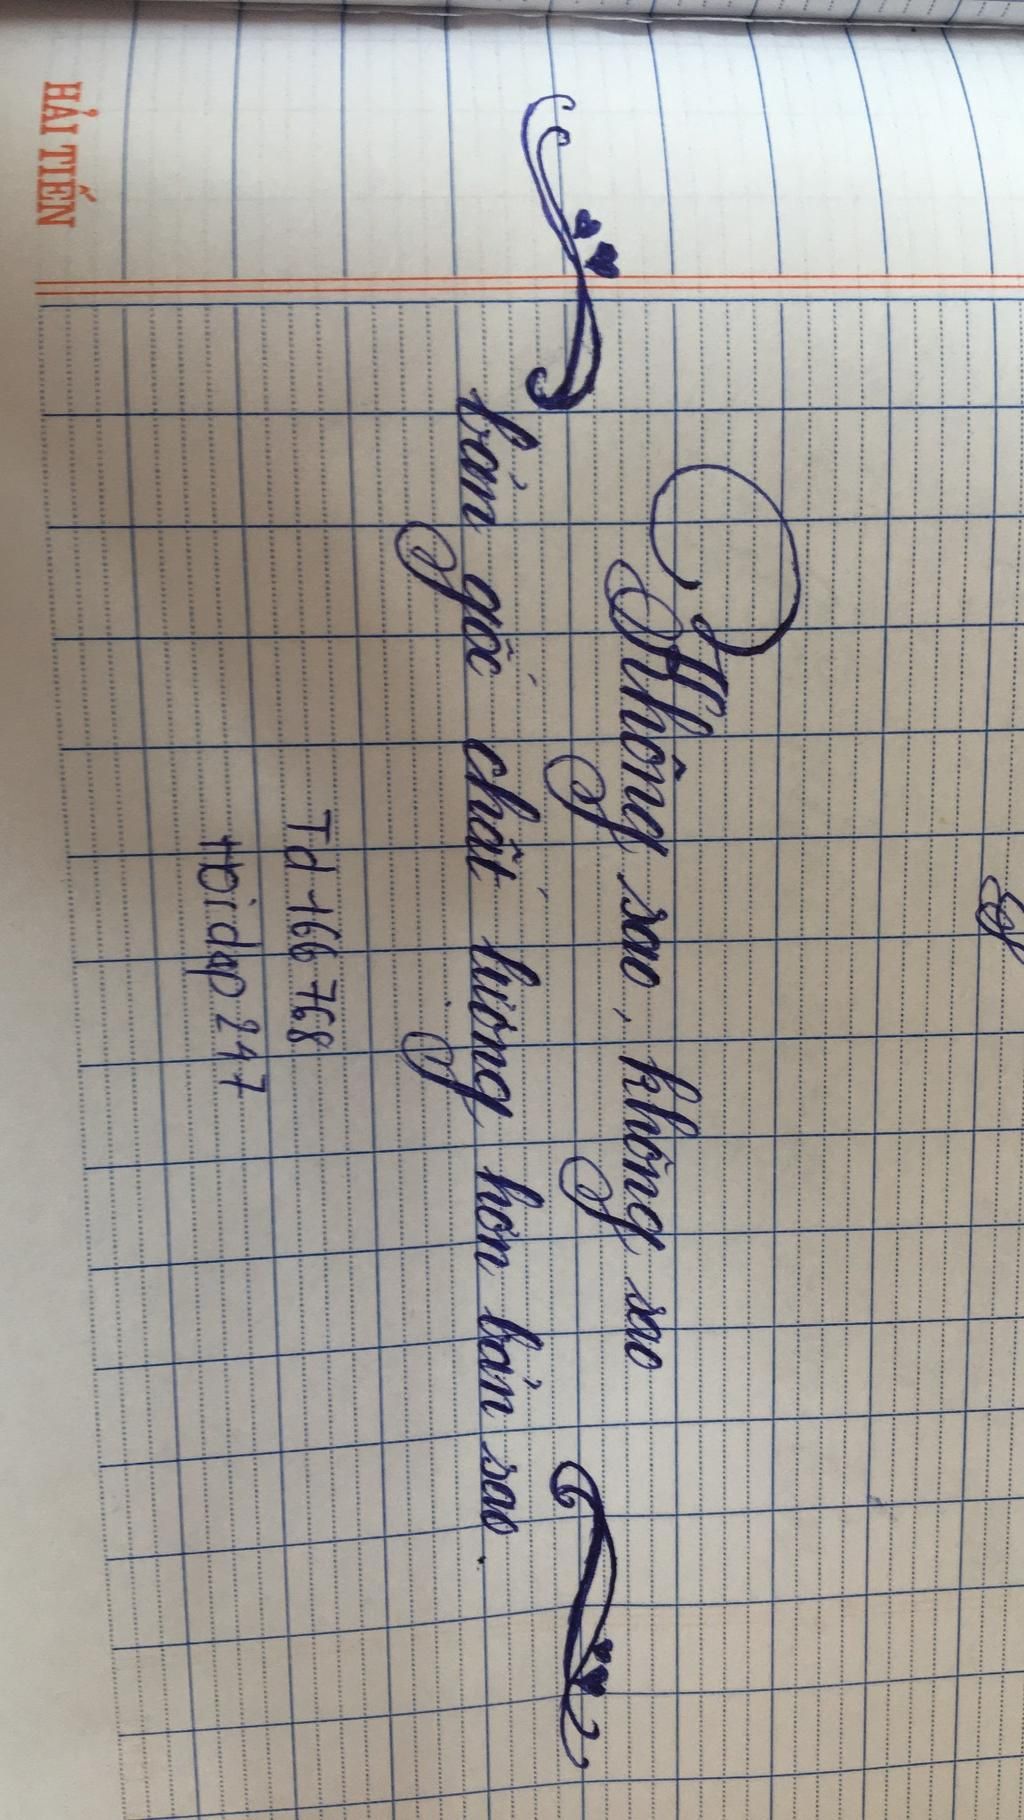 HẢI TIẾN
Không sao, không sao
bản gốc chất lượng hơn bản sao.
Td 166 768
Hoidap 247